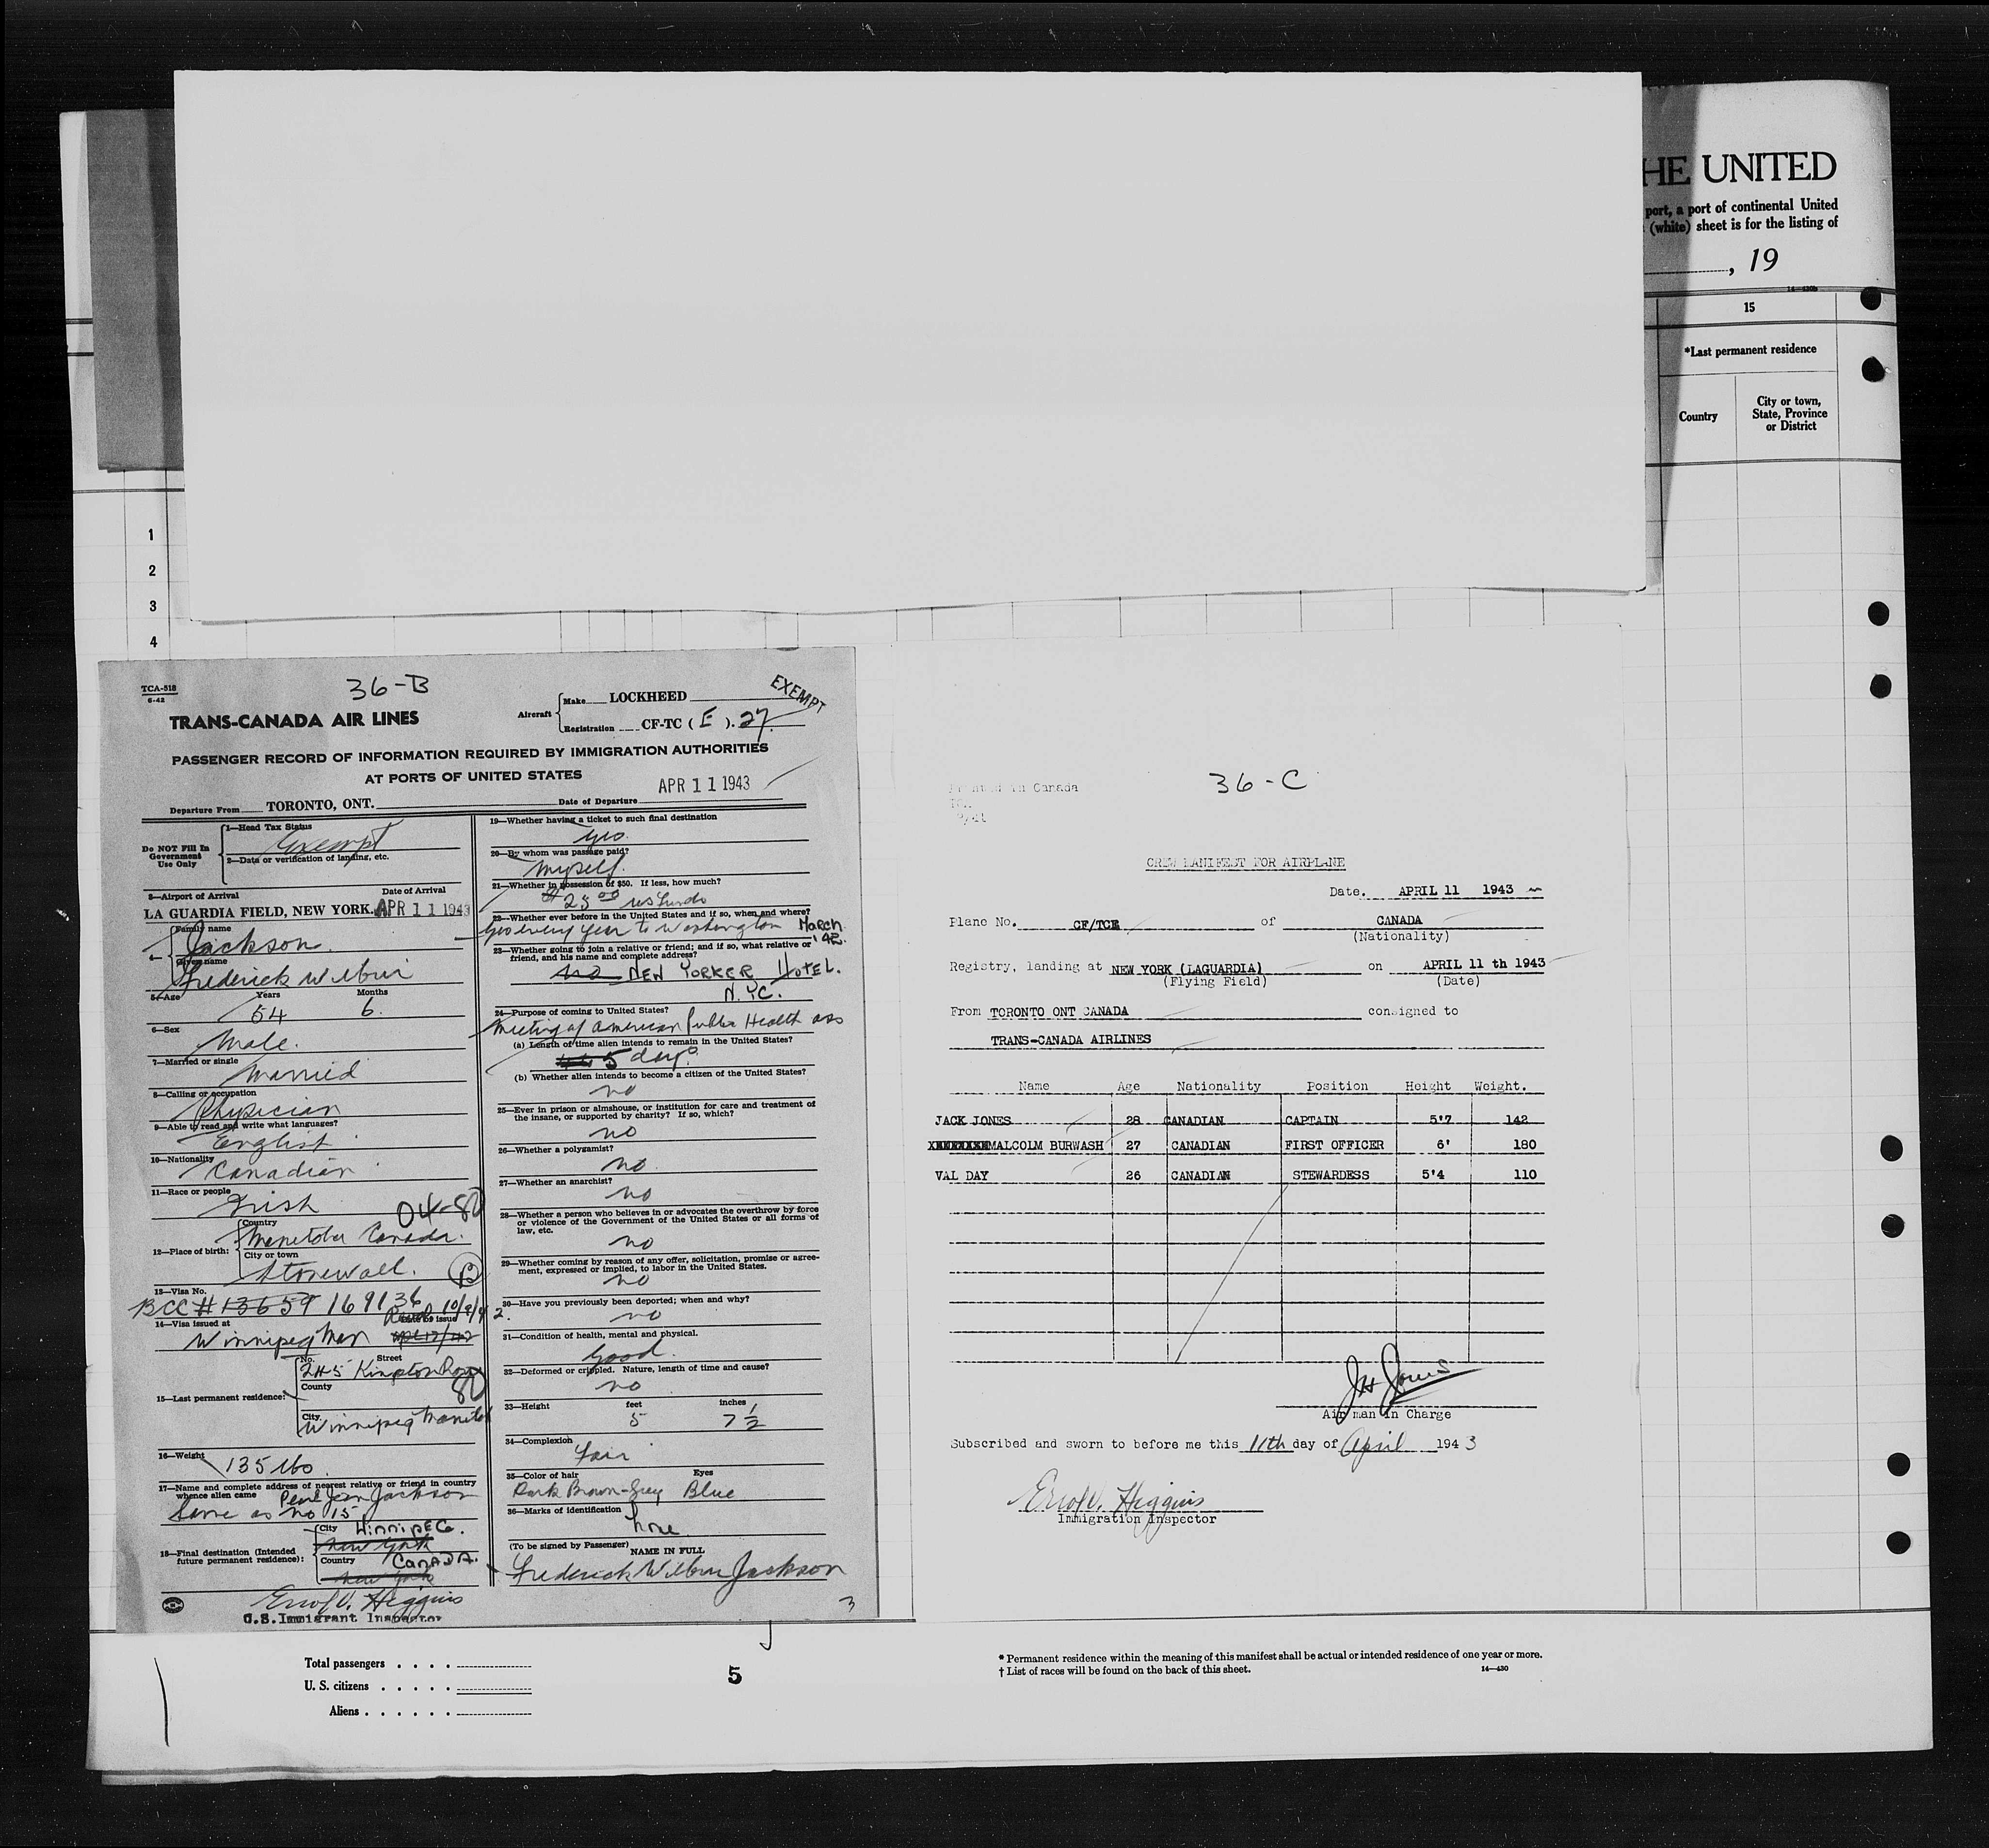 HE UNITED
port, a port of continental United
(white) sheet is for the listing of
, 19
14-430b
15
*Last permanent residence
Country
City or town,
State, Province
or District
1
2
3
4
TCA-518
6-42
36-B
EXEMPT
TRANS-CANADA AIR LINES
Aircraft
Make LOCKHEED
Registration CF-TC ( E ). 27
PASSENGER RECORD OF INFORMATION REQUIRED BY IMMIGRATION AUTHORITIES
AT PORTS OF UNITED STATES
Departure From TORONTO, ONT. Date of Departure APR 11 1943
Do NOT Fill In
Government
Use Only
1—Head Tax Status
Exempt
2—Data or verification of landing, etc.
3—Airport of Arrival Date of Arrival
LA GUARDIA FIELD, NEW YORK. APR 11 1943
4—
Family name
Jackson
Given name
Frederick Wilbur
5—Age Years Months
54 6.
6—Sex
Male.
7—Married or single
Married
8—Calling or occupation
Physician
9—Able to read and write what languages?
English
10—Nationality
Canadian
11—Race or people
Irish 04-80
12—Place of birth:
Country
Manitoba Canada.
City or town
Stonewall. B
13—Visa No.
BCC # 13659 169136
14—Visa issued at Date of issue 10/9/42.
Winnipeg Man
15—Last permanent residence:
No. Street
245 Kingston Row
County
80
City
Winnipeg Manitob
16—Weight
135 lbs.
17—Name and complete address of nearest relative or friend in country
whence alien came Jackson
Same as No 15
18—Final destination (Intended
future permanent residence):
City WINNIPEG.
New York
Country CANADA.
New York
Errol V. Higgins
U.S. Immigrant Inspector
19—Whether having a ticket to such final destination
yes.
20—By whom was passage paid?
Myself.
21—Whether in possession of $50. If less, how much?
$25 00 US Funds
22—Whether ever before in the United States and if so, when and where?
Yes every year to Washington March '42.
23—Whether going to join a relative or friend; and if so, what relative or
friend, and his name and complete address?
no NEW YORKER HOTEL.
N.Y.C.
24—Purpose of coming to United States?
Meeting of American Public Health ass
(a) Length of time alien intends to remain in the United States?
5 days.
(b) Whether alien intends to become a citizen of the United States?
no
25—Ever in prison or almshouse, or institution for care and treatment of
the insane, or supported by charity? If so, which?
no
26—Whether a polygamist?
no.
27—Whether an anarchist?
no
28—Whether a person who believes in or advocates the overthrow by force
or violence of the Government of the United States or all forms of
law, etc.
no
29—Whether coming by reason of any offer, solicitation, promise or agree-
ment, expressed or implied, to labor in the United States.
no
30—Have you previously been deported; when and why?
no
31—Condition of health, mental and physical.
Good.
32—Deformed or crippled. Nature, length of time and cause?
no
33—Height feet inches
5 7 1/2
34—Complexion
Fair
35—Color of hair Eyes
Dark Brown-Grey Blue
36—Marks of identification
none
(To be signed by Passenger) NAME IN FULL
Frederick Wilbur Jackson
3
36-C
Printed in Canada
CREW MANIFEST FOR AIRPLANE
Date. APRIL 11 1943
Plane No. CF/TCE of CANADA
(Nationality)
Registry, landing at NEW YORK (LAGUARDIA) on APRIL 11 th 1943
(Flying Field) (Date)
From TORONTO ONT CANADA consigned to
TRANS-CANADA AIRLINES
Name Age Nationality Position Height Weight.
JACK JONES 28 CANADIAN CAPTAIN 5'7 142
MALCOLM BURWASH 27 CANADIAN FIRST OFFICER 6' 180
VAL DAY 26 CANADIAN STEWARDESS 5'4 110
JH Jones
Air man in Charge
Subscribed and sworn to before me this 11th day of April 1943
Errol V. Higgins
Immigration Inspector
Total passengers . . . .
U. S. citizens . . . . .
Aliens . . . . . .
5
* Permanent residence within the meaning of this manifest shall be actual or intended residence of one year or more.
† List of races will be found on the back of this sheet. 14—430